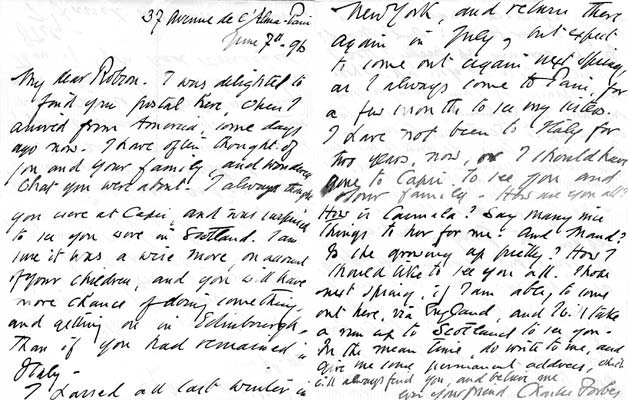 37 Avenue de l'Alma - Paris
June 7th - 96
My dear Robson - I was delighted to
find your postal here, when I
arrived from America, some days
ago now. I have often thought of
you and your family, and wondered
what you were about. I always thought
you were at Capri, and was surprised
to see you were in Scotland. I am
sure it was a wise move, on account
of your children, and you will have
more chance of doing something,
and getting on in Edinburgh,
than if you had remained in
Italy -
I passed all last winter in
New York, and return there
again in July, but expect
to come out again next spring,
as I always come to Paris, for
a few months to see my sisters.
I have not been to Italy for
two years, now, or I should have
gone to Capri to see you and
your family - How are you all?
How is Carmela? Say many nice
things to her for me - And Maud?
Is she growing up pretty? How I
should like to see you all. I hope
next spring, if I am able, to come
out here, via England, and I'll take
a run up to Scotland to see you -
In the mean time, do write to me, and
give me some permanent address, which
will always find you, and believe me
ever your friend Charles Forbes